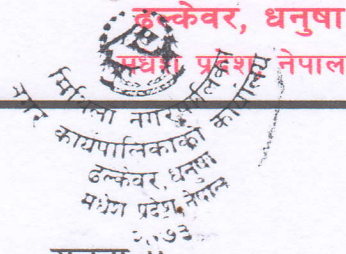 ढल्केवर, धनुषा
मधेश प्रदेश, नेपाल
मिथिला नगरपालिका
नगर कार्यपालिकाको कार्यालय
ढल्केवर, धनुषा
मधेश प्रदेश, नेपाल